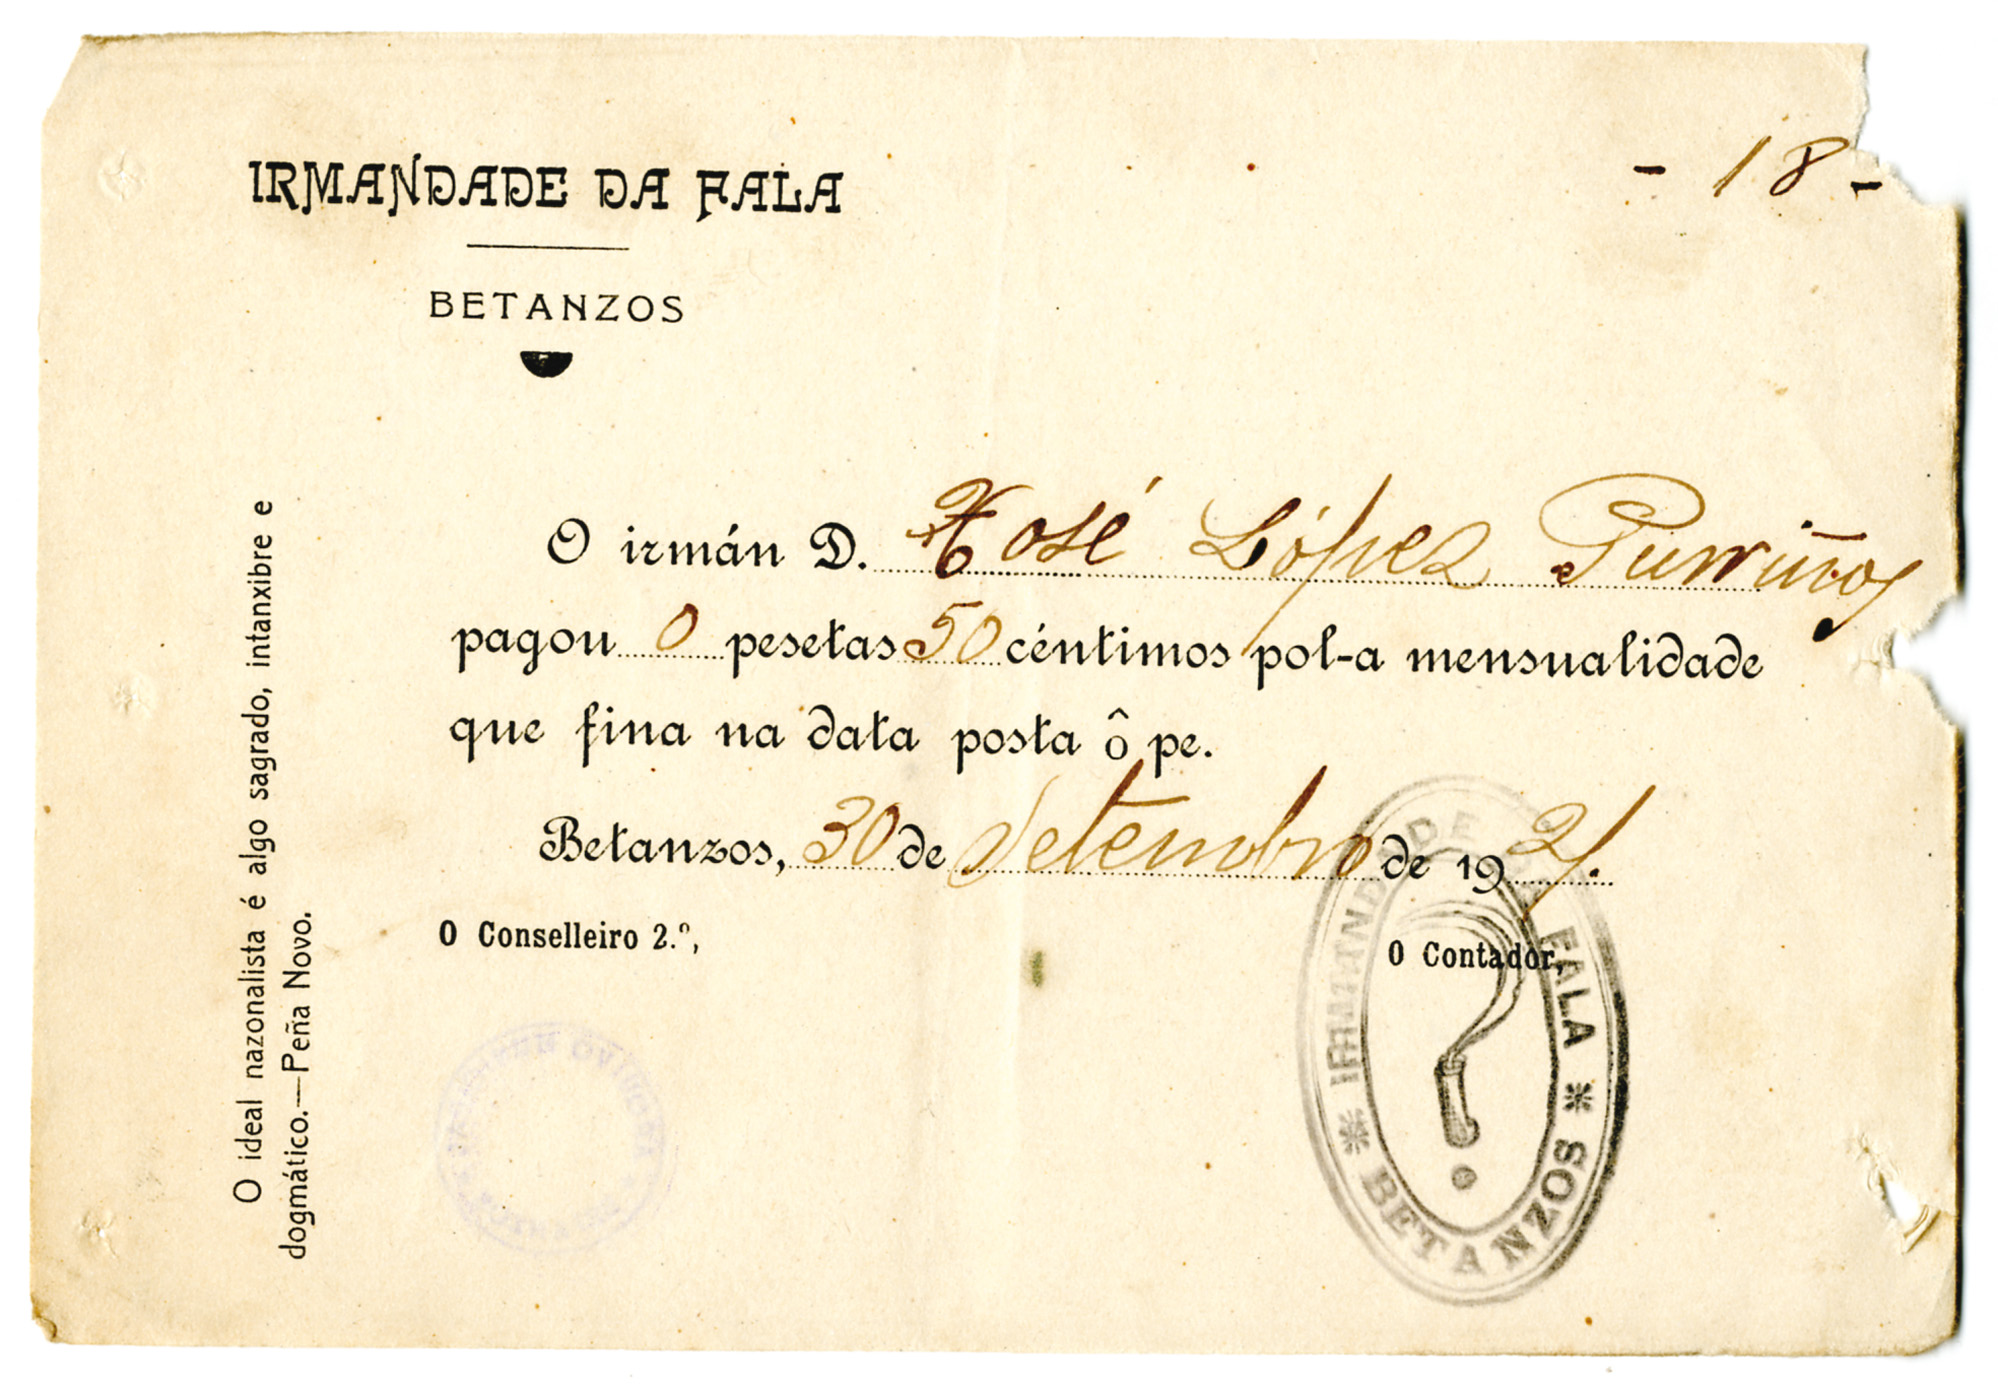 IRMANDADE DA FALA
BETANZOS
- 18 -
O irmán D. Xosé López Purriños
pagou 0 pesetas 50 céntimos pol-a mensualidade
que fina na data posta ô pe.
Betanzos, 30 de Setembro de 1921.
O Conselleiro 2.º,
O Contador,
O ideal nazonalista é algo sagrado, intanxibre e
dogmático.—Peña Novo.
IRMANDADE DA FALA
* BETANZOS *